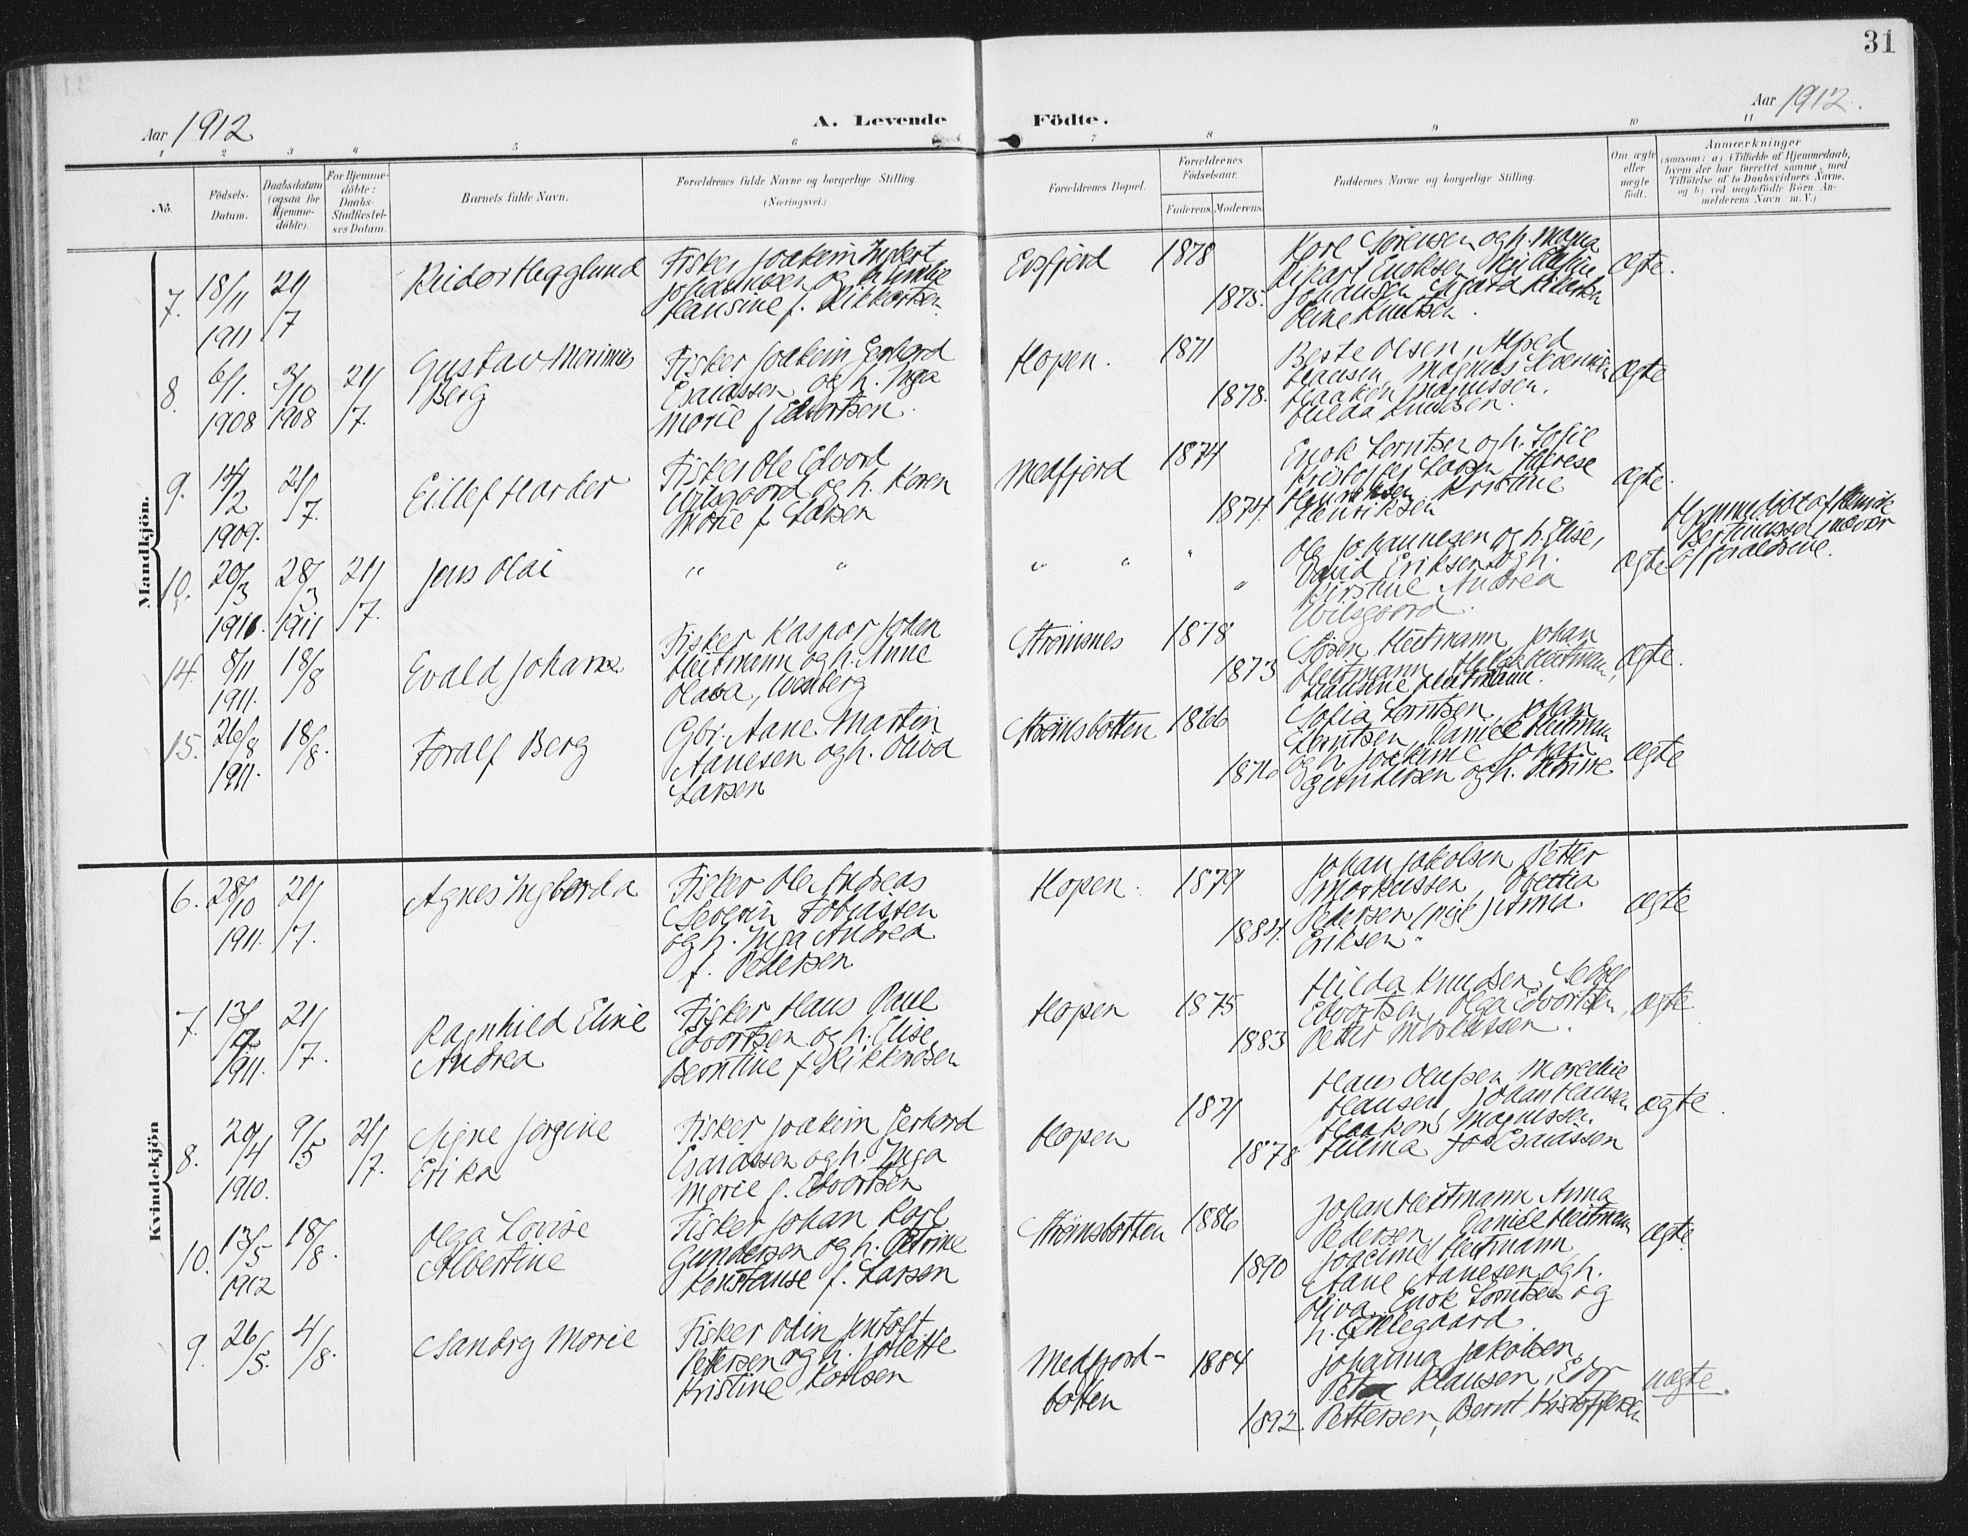 31
Aar 1912
A. Levende Födte.
Aar 1912.
1 2 3 4 5 6 7 8 9 10 11
No.
Födsels-
Datum.
Daabsdatum
(ogsaa for
Hjemme-
döbte).
For Hjemme-
döbte:
Daabs-
Stadfæstel-
ses Datum.
Barnets fulde Navn.
Forældrenes fulde Navne og borgerlige Stilling.
(Næringsvei.)
Forældrenes Bopæl.
Forældrenes
Födselsaar.
Faderens. Moderens.
Faddernes Navne og borgerlige Stilling.
Om ægte
eller
uægte
födt.
Anmærkninger
(saasom: a) i Tilfælde af Hjemmedaab,
hvem der har forrettet samme, med
Tilföielse af to Daabsvidners Navne,
og b) ved uægtefödte Börn An-
melderens Navn m. V.)
Mandkjön.
7. 18/11 1911 21/7 Reidar Hegglund
Fisker Joakim Ingbert
Johansen og h.
Hansine f. Rikkartsen.
Evsfjord 1878 1875.
Karl Sørensen og h. Magna
Rikart Enoksen
Johansen Sigard
Oline Knutsen.
ægte.
8. 6/1 1908 3/10 1908 21/7. Gustav Marinius
Berg
Fisker Joakim Gerhard
Esaiassen og h. Inga
Marie f. Edvartsen.
Hopen. 1871 1878.
Beste Olsen, Alfred
Hansen, Magnus
Haaken Magnussen,
Hilda Knudsen.
ægte
9. 14/2 1909. 21/7. Eillef Harder
Fisker Ole Edvard
Wilsgaard og h. Karen
Marie f. Larsen
Medfjord 1874 1874.
Enok Lorntsen og h. Sofie
Kristoffer Larsen Therese
Henriksen Kristine
Henriksen
ægte.
10. 20/3 1911. 28/3 1911 21/7. Jens Olai
" "
" " " "
Ole Johannesen og h. Elise,
David Eriksen og h.
Kirstine Andrea
Wilsgaard.
ægte
Hjemmedøbt af Henrik
Bertinussen
af forældrene.
14. 8/11 1911. 18/8 Evald Johans
Fisker Kaspar Johan
Heitmann og h. Anne
Olava, Wenberg
Strømsnes 1878 1873
Søren Heitmann, Johan
Heitmann, Heitman,
Hansine Heitmann.
ægte.
15. 26/8 1911. 18/8. Toralf Berg
Gbr. Aane Martin
Aanesen og h. Oliva
Larsen
Strømsbotten 1866 1876
Sofia Lorntsen, Johan
Lorntsen, Daniel Heitman
og h. Joakime Johan
Gundersen og h. Petrine
ægte
Kvindekjön
6. 28/10 1911. 21/7. Agnes Ingborda
Fisker Ole Andreas
Severin Tobiassen
og h. Inga Andrea
f. Pedersen
Hopen. 1879 1884.
Johan Jakolsen Petter
Markussen
Pedersen (pige) Anna
Eriksen.
ægte
7. 13/12 1911. 21/7. Ragnhild Eline
Andrea
Fisker Hans Paul
Edvartsen og h. Elise
Berntine f. Rikkardsen
Hopen 1875 1883
Hilda Knudsen,
Edvartsen, Olga Edvartsen,
Petter Markussen.
ægte.
8. 20/4 1910. 9/5 21/7. Signe Jørgine
Erika
Fisker Joakim Gerhard
Esaiassen og h. Inga
Marie f. Edvartsen
Hopen 1871 1878
Hans Olufsen,
Hansen Johan Hansen
Haakon Magnussen.
Hilma Esaiassen
ægte.
10. 13/5 1912 18/8. Olga Lovise
Albertine
Fisker Johan Karl
Gundersen og h. Petrine
Konstanse f. Larsen
Strømsbotten 1886 1890
Johan Heitmann Anna
Pedersen, Daniel Heitmann
Joacime Heitmann
Aane Aanesen og h.
Oliva, Enok Lorntsen og
h. Ellegaard.
ægte.
9. 26/5. 4/8. Sandry Marie
Fisker Odin Jentoft
Pettersen og h. Jolette
Kristine Karlsen
Medfjord-
botten 1884 1892.
Johanna Jakolsen,
Klausen, Edv.
Pettersen, Bernt Kristoffersen
uægte.